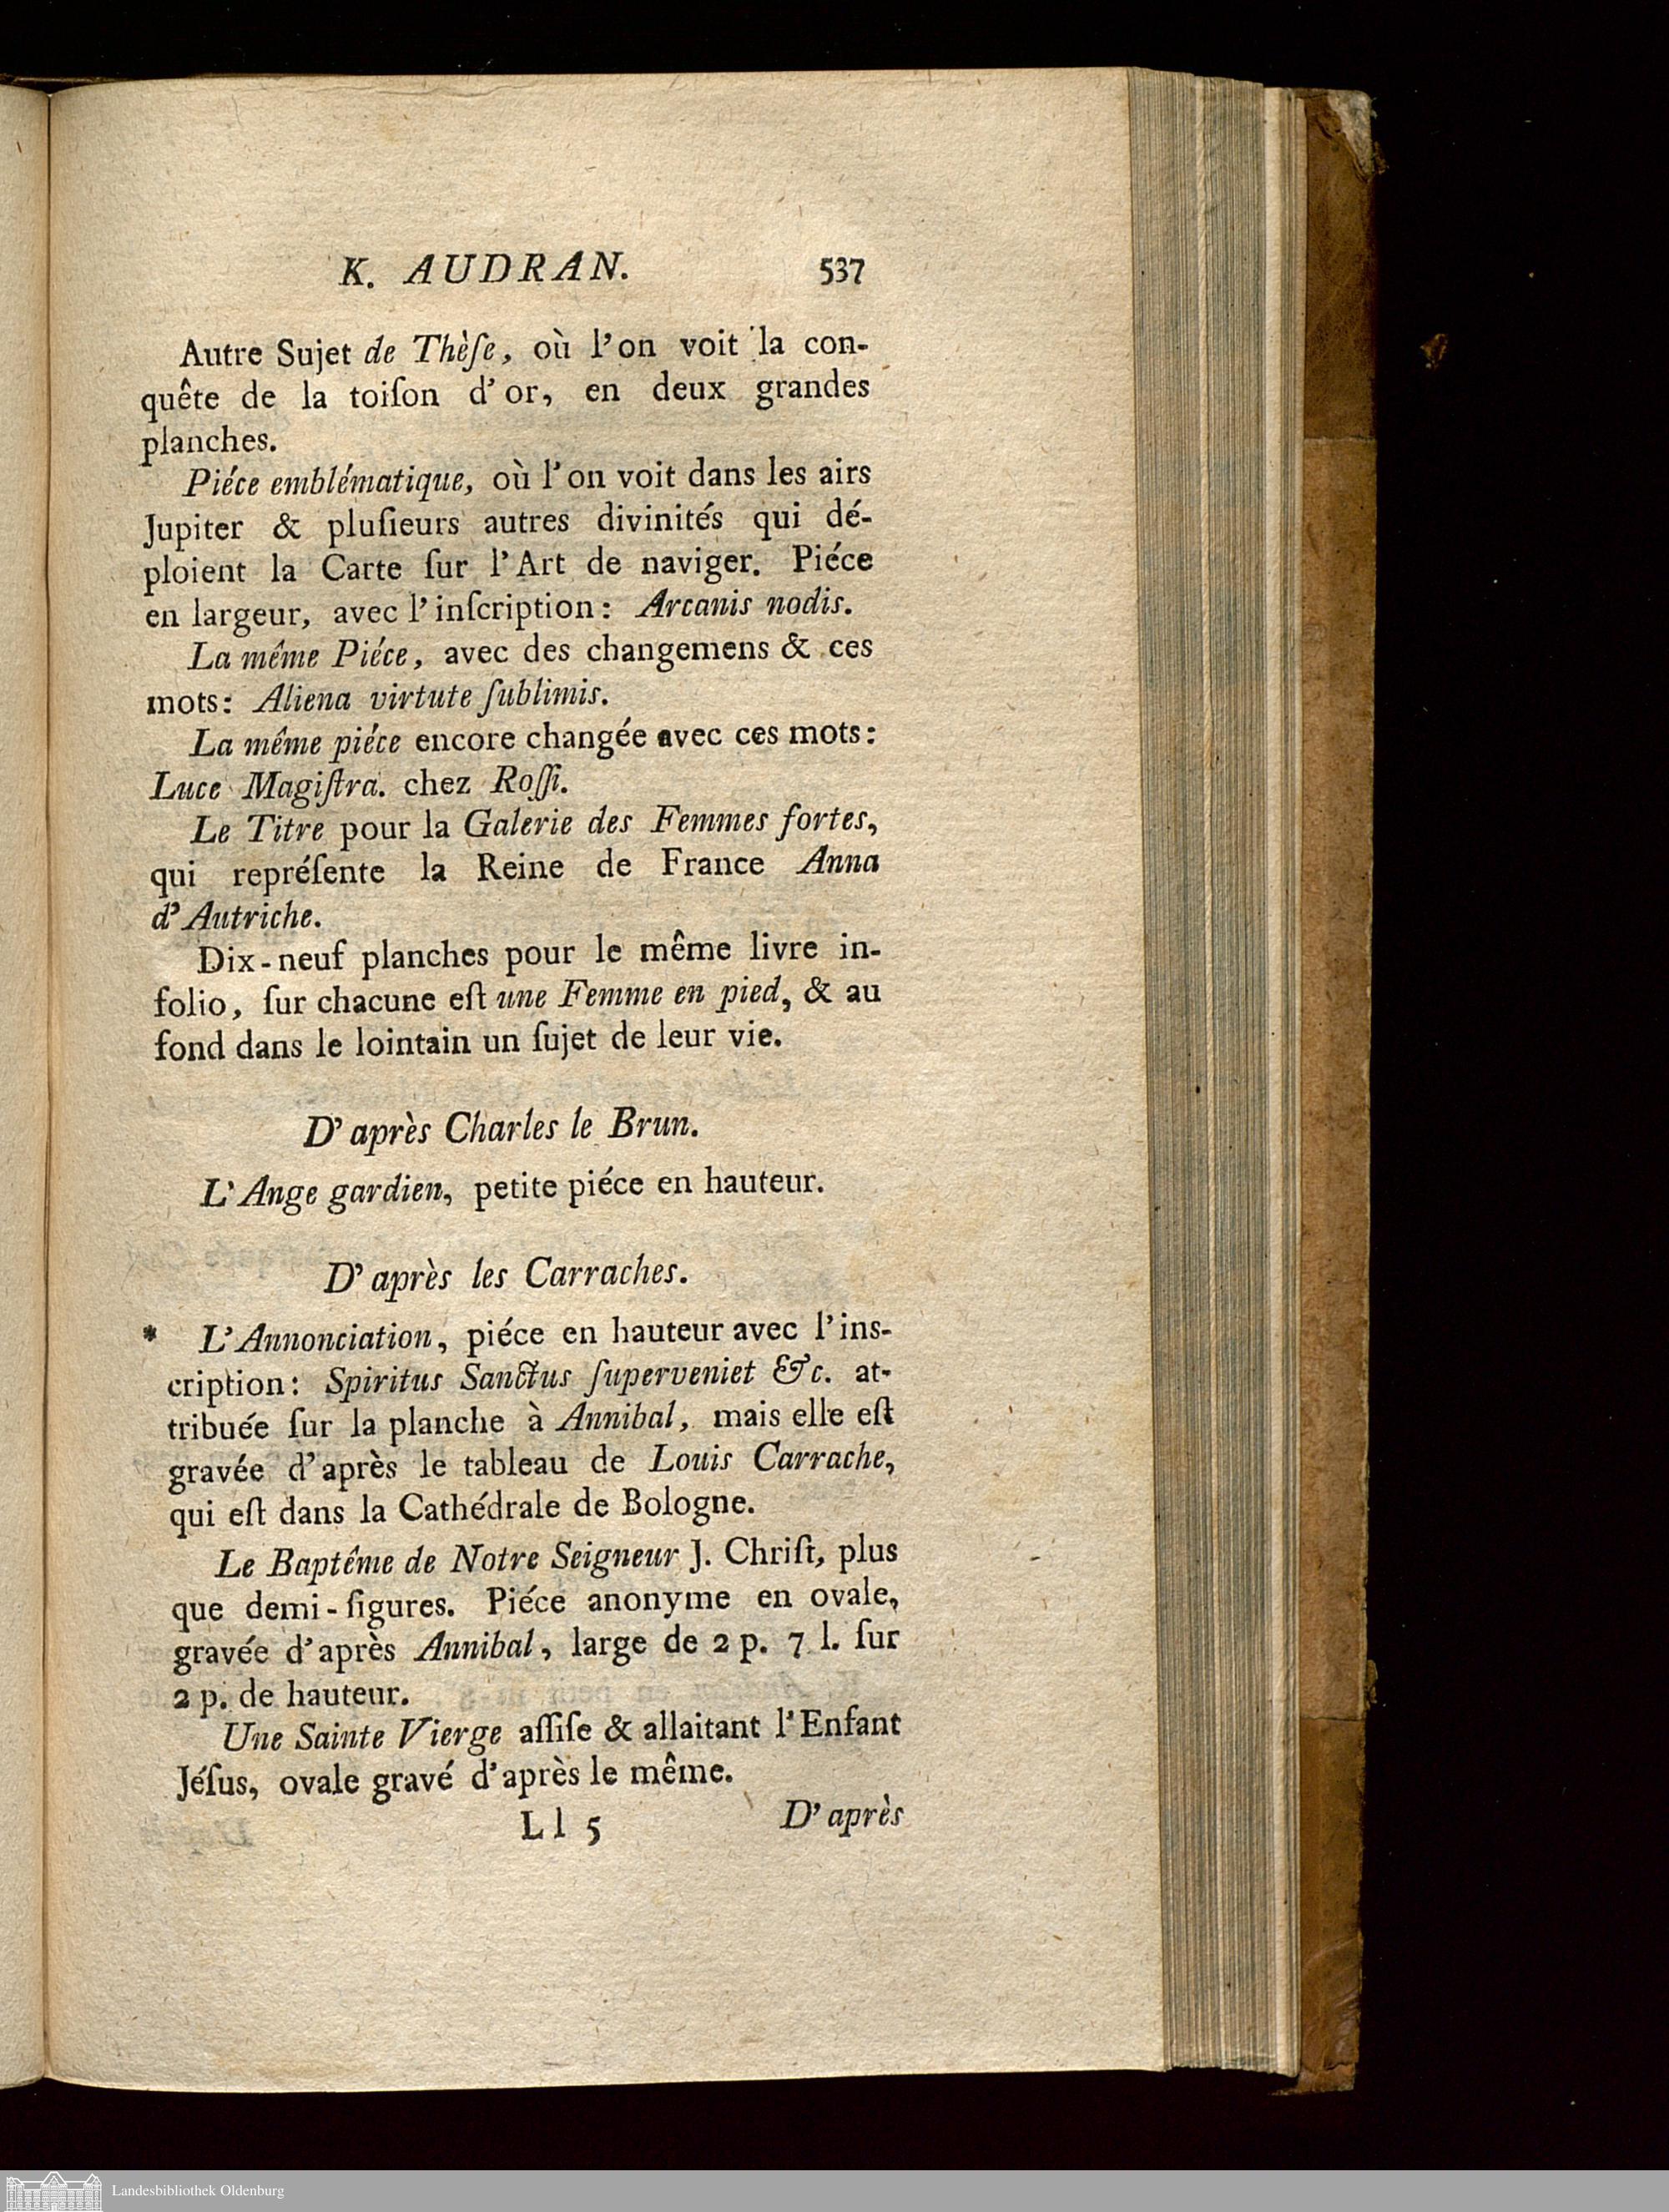 K. AUDRAN. 537
Autre Sujet de Thèſe, où l'on voit la con-
quête de la toiſon d'or, en deux grandes
planches.
Piéce emblématique, où l'on voit dans les airs
Jupiter & pluſieurs autres divinités qui dé-
ploient la Carte ſur l'Art de naviger. Piéce
en largeur, avec l'inſcription: Arcanis nodis.
La même Piéce, avec des changemens & ces
mots: Aliena virtute ſublimis.
La même piéce encore changée avec ces mots:
Luce Magiſtra. chez Roſſi.
Le Titre pour la Galerie des Femmes fortes,
qui repréſente la Reine de France Anna
d'Autriche.
Dix-neuf planches pour le même livre in-
folio, ſur chacune eſt une Femme en pied, & au
fond dans le lointain un ſujet de leur vie.
D'après Charles le Brun.
L'Ange gardien, petite piéce en hauteur.
D'après les Carraches.
* L'Annonciation, piéce en hauteur avec l'ins-
cription: Spiritus Sanctus ſuperveniet &c. at-
tribuée ſur la planche à Annibal, mais elle eſt
gravée d'après le tableau de Louis Carrache,
qui eſt dans la Cathédrale de Bologne.
Le Baptême de Notre Seigneur J. Chriſt, plus
que demi-figures. Piéce anonyme en ovale,
gravée d'après Annibal, large de 2 p. 7 l. ſur
2 p. de hauteur.
Une Sainte Vierge aſſiſe & allaitant l'Enfant
Jéſus, ovale gravé d'après le même.
Ll 5 D'après
Landesbibliothek Oldenburg